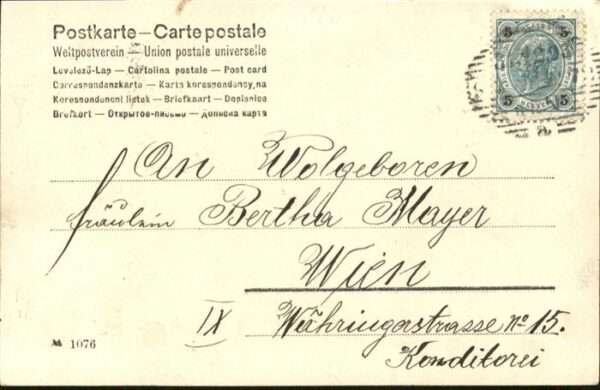 Postkarte — Carte postale
Weltpostverein — Union postale universelle
Levelező-Lap — Cartolina postale — Post card
Correspondenzkarte — Karta korespondencyjna
Korespondenční lístek — Briefkaart — Dopisnica
Brefkort — Открытое письмо — Дописна карта
5 5
5 5
An Wolgeboren
fräulein Bertha Mayer
Wien
IX Währingerstrasse No 15.
Konditorei
№ 1076